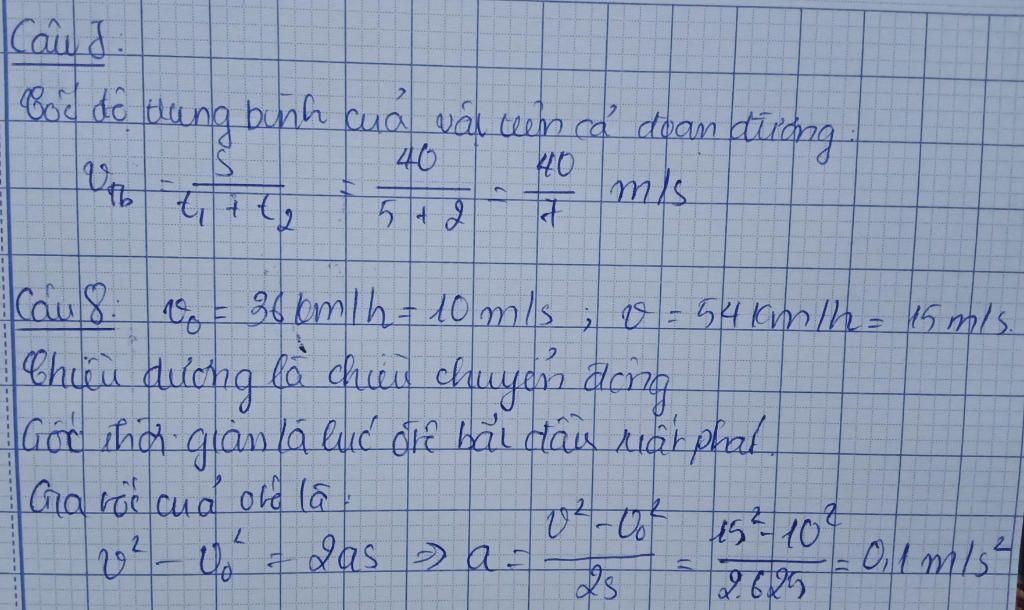 Câu 7:
Tốc độ trung bình của vật trên cả đoạn đường:
v_tb = s / (t₁ + t₂) = 40 / (5 + 2) = 40/7 m/s
Câu 8: v₀ = 36 km/h = 10 m/s ; v = 54 km/h = 15 m/s.
Chiều dương là chiều chuyển động
Gốc thời gian là lúc ôtô bắt đầu xuất phát.
Gia tốc của ôtô là:
v² - v₀² = 2as ⇒ a = (v² - v₀²) / 2s = (15² - 10²) / 2.625 = 0,1 m/s²